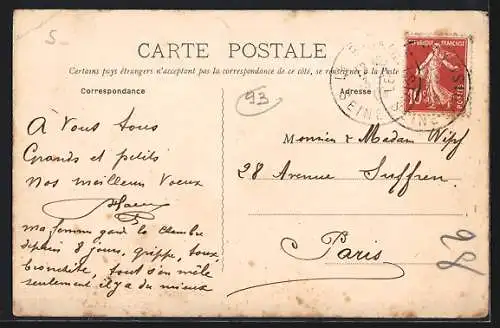 5-
CARTE POSTALE
Certains pays étrangers n'acceptant pas la correspondance de ce côté, se renseigner à la Poste
Correspondance
Adresse
93
REPUBLIQUE FRANÇAISE
10c
POSTES
SEINE
SEINE
À Vous tous
Grands et petits
Nos meilleurs Voeux
ma femme garde la chambre
depuis 8 jours, grippe, toux,
bronchite, tout s'en mêle
seulement il y a du mieux
Monsieur & Madam
28 Avenue Suffren
Paris